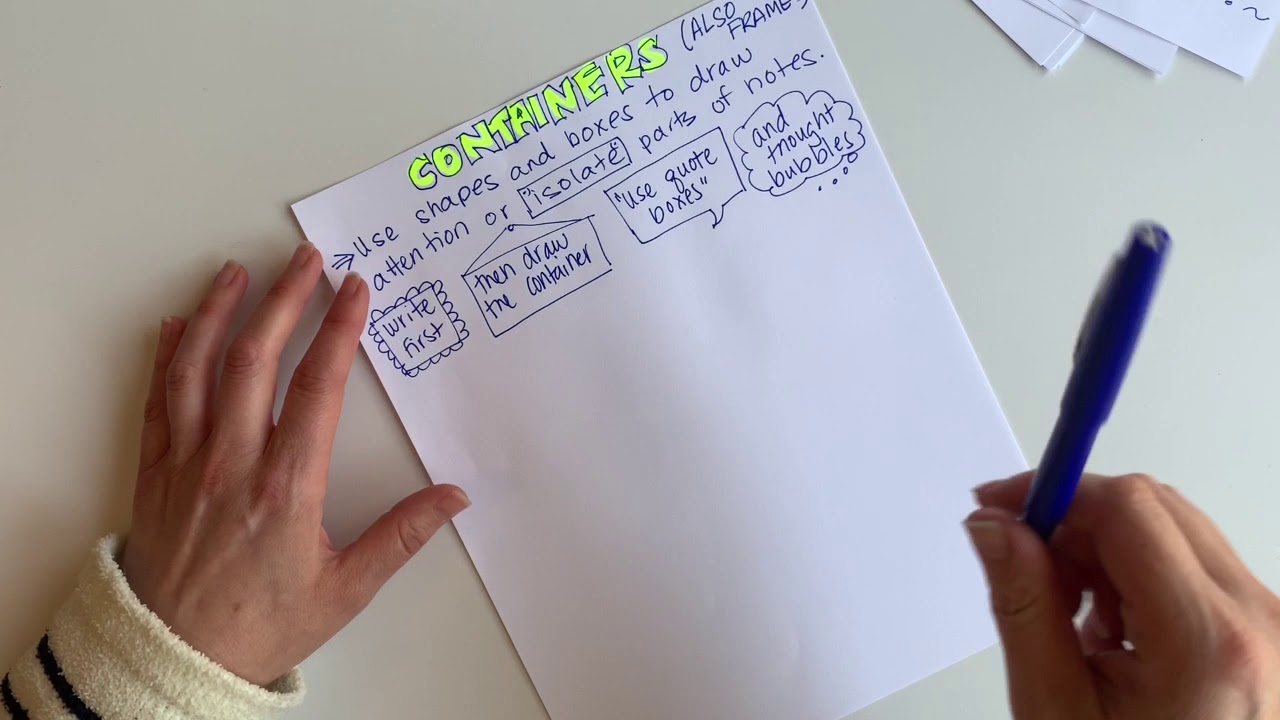 CONTAINERS (ALSO
FRAMES
⇒ Use shapes and boxes to draw
attention or "isolate" parts of notes.
write
first
then draw
the container
"use quote
boxes"
and
thought
bubbles